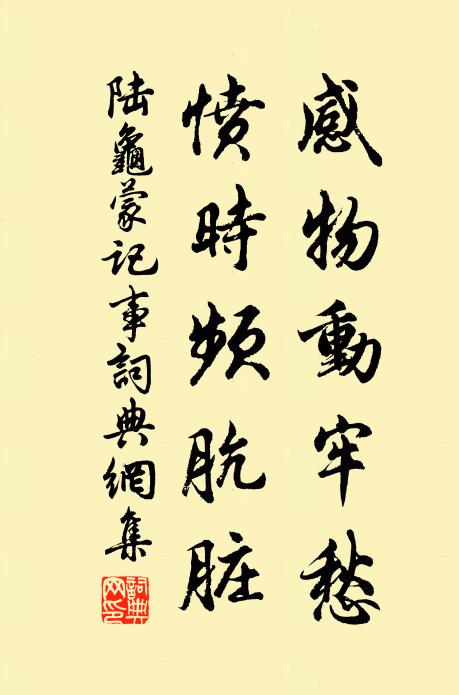 感物動牢愁
憤時頻肮脏
陆龜蒙记事詞典網集
詞典网印